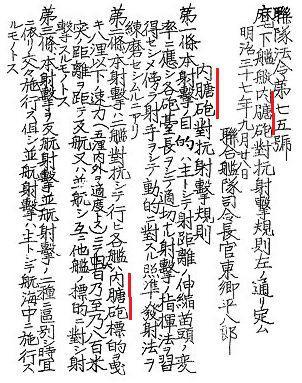 聯隊法令第七五號
麾下艦艇内膅砲對抗射擊規則左ノ通リ定ム
明治三十七年九月廿八日
聯合艦隊司令長官東郷平八郎
内膅砲對抗射擊規則
第一條本射擊ノ目的ハ主トシテ射距離ノ伸縮苗頭ノ変
率ニ應シ各砲臺長ヲシテ適切ナル射擊ノ指揮法ヲ習
得セシメ傍ラ射手ヲシテ動的ニ對スル照準發射法ヲ
練磨セシムルニアリ
第二條本射擊ハ二艦對抗シテ行ヒ各艦ハ内膅砲標的ヲ曳
キ八浬以下ノ速力(五浬内外ヲ適度トス)ニテ四百乃至八百米
突ノ距離ヲ距テ交航又ハ並航シ互ニ他艦ノ標的ニ對シ射擊
スルモノトス
第三條本射擊ヲ交航射擊並航射擊ノ二種ニ區別シ時宜
ニ依リ交々施行ス但シ並航射擊ハ主トシテ航海中ニ施行ス
ルモノトス